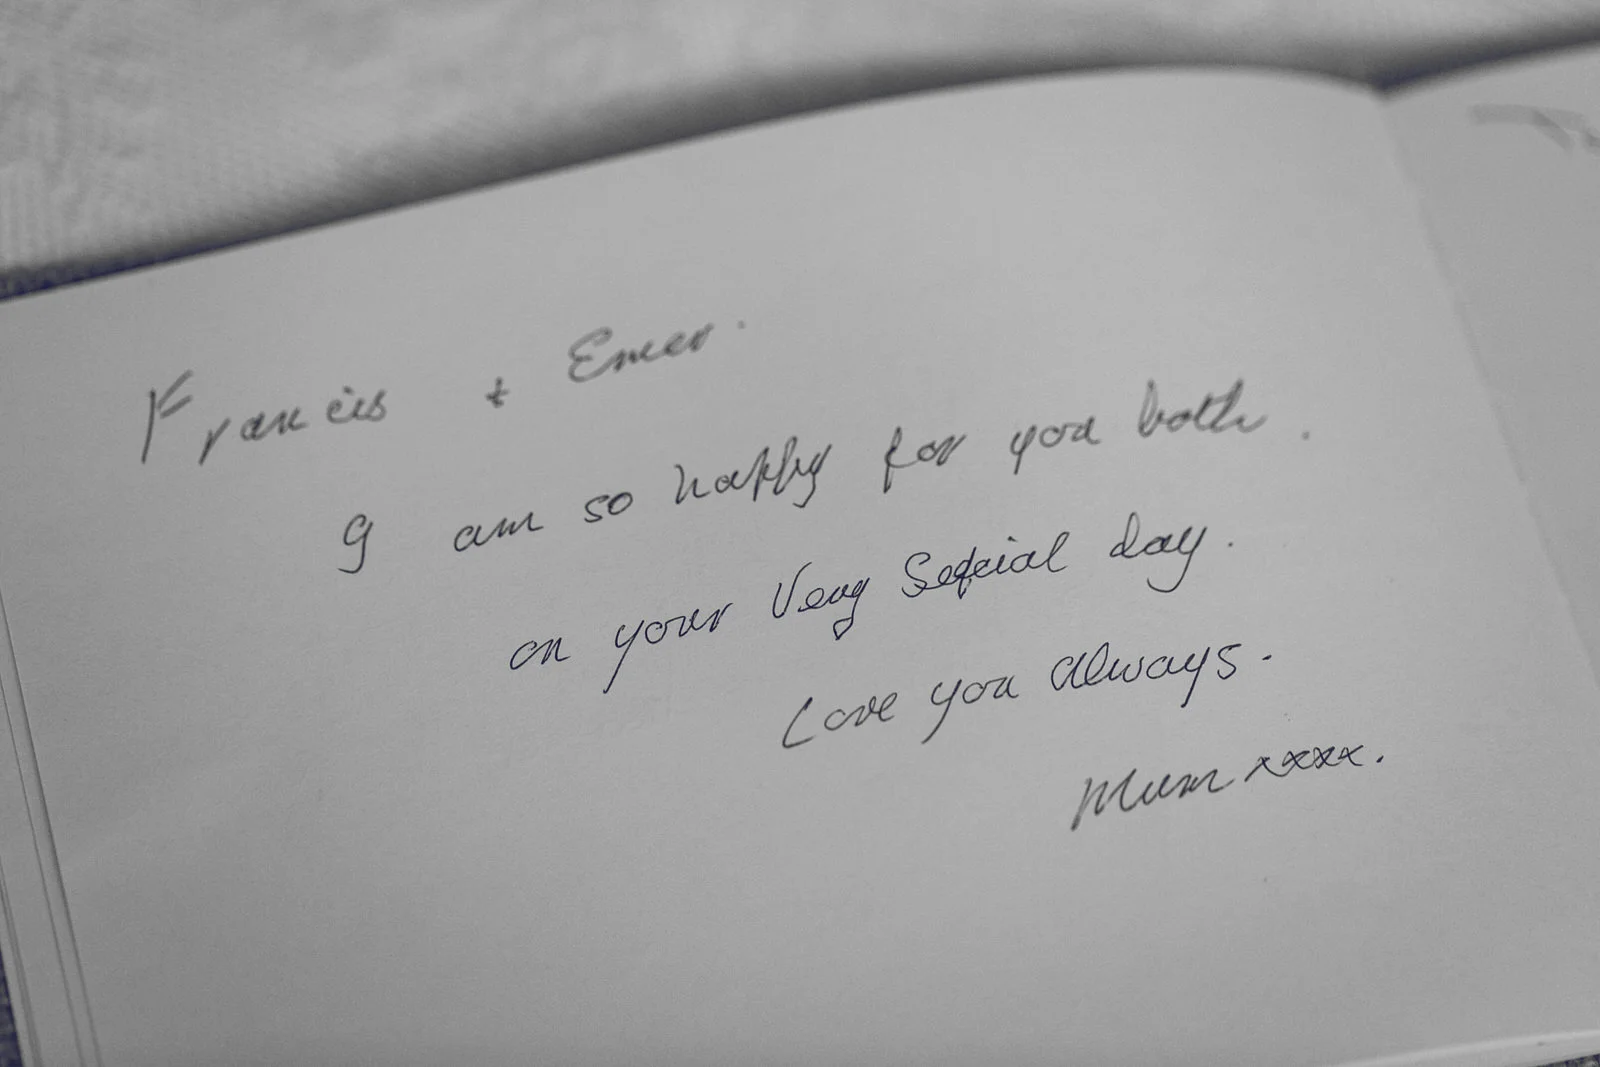 Francis + Emer.
I am so happy for you both.
on your Very Sepcial day.
Love you always.
Mum xxxx.